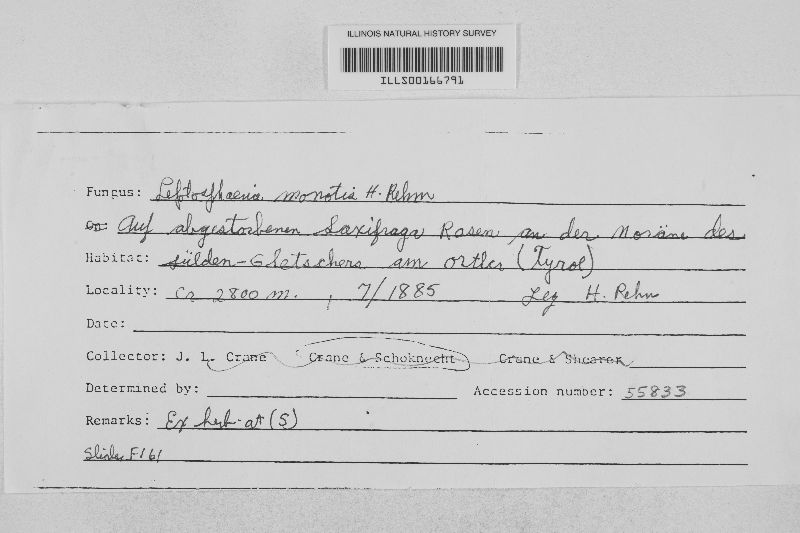 ILLINOIS NATURAL HISTORY SURVEY
ILLS00166791
Fungus: Leptosphaeria monotis H. Rehm
On: Auf abgestorbenen Saxifraga Rasen an der Moräne des
Habitat: sülden-Gletschers am Ortler (Tyrol)
Locality: Ca 2800 m. , 7/1885 Leg H. Rehm
Date:
Collector: J. L. Crane Crane & Schoknecht Crane & Shearer
Determined by: Accession number: 55833
Remarks: Ex herb. at (S)
Slides F161